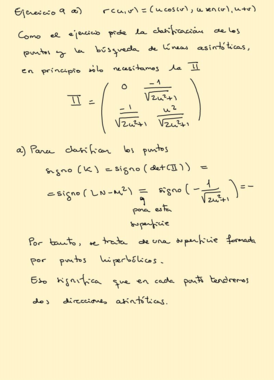 Ejercicio 9 a) r(u,v) = (u cos(v), u sen(v), u+v)
Como el ejercicio pide la clasificación de los
puntos y la búsqueda de líneas asintóticas,
en principio sólo necesitamos la II
II = ( 0 -1/√2u²+1
-1/√2u²+1 u²/√2u²+1 )
a) Para clasificar los puntos
signo (K) = signo (det(II)) =
= signo (LN-M²) = signo (- 1/√2u²+1) = -
para esta
superficie
Por tanto, se trata de una superficie formada
por puntos hiperbólicos.
Eso significa que en cada punto tendremos
dos direcciones asintóticas.